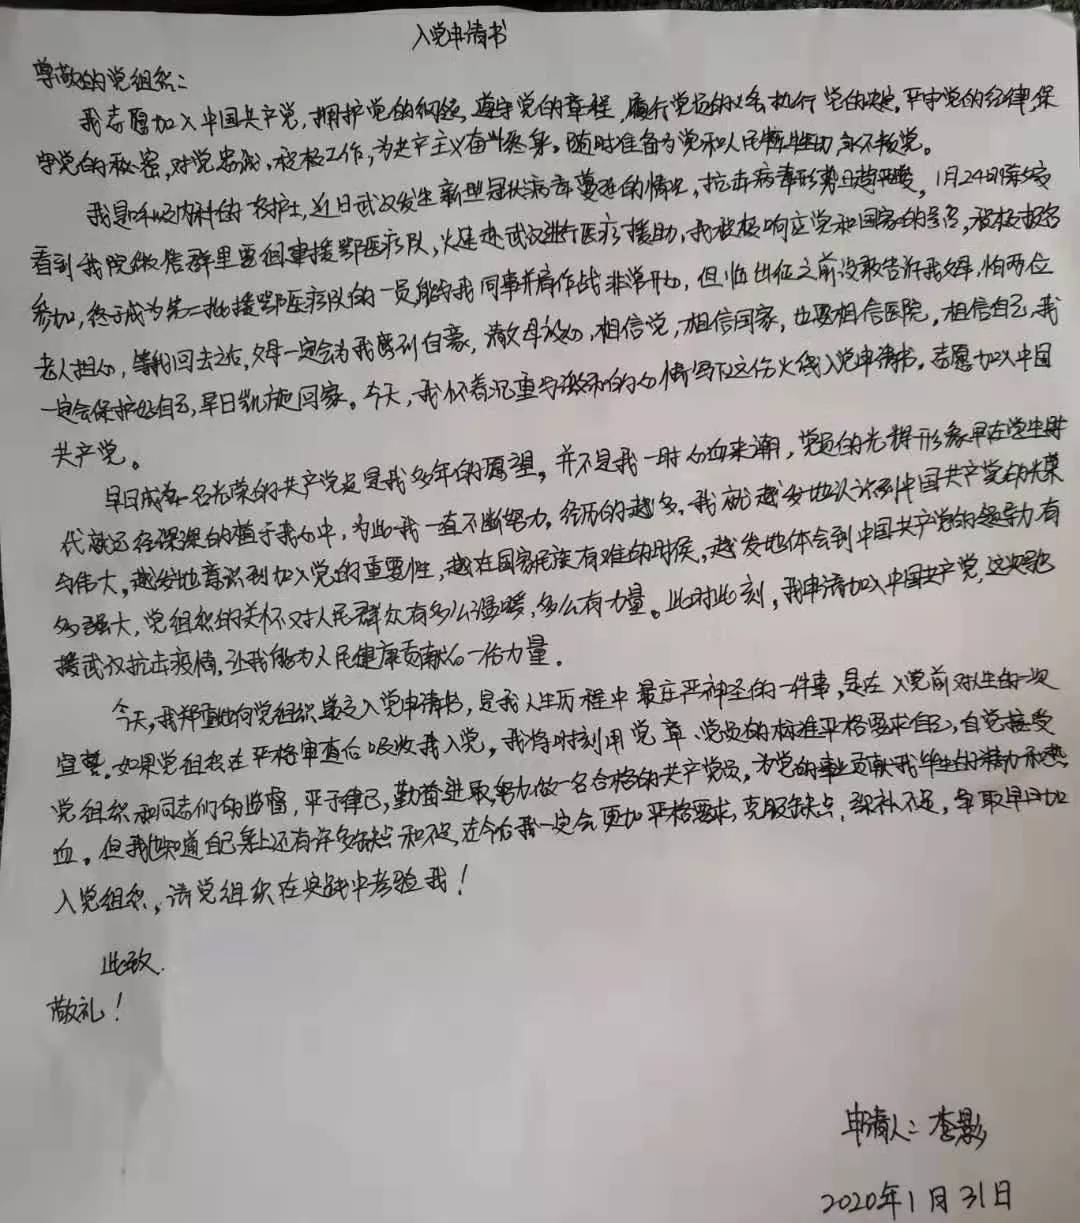 入党申请书
尊敬的党组织：
我志愿加入中国共产党，拥护党的纲领，遵守党的章程，履行党员的义务，执行党的决定，严守党的纪律，保
守党的秘密，对党忠诚，积极工作，为共产主义奋斗终身。随时准备为党和人民牺牲一切，永不叛党。
我是呼吸内科的一名护士，近日武汉发生新型冠状病毒蔓延的情况，抗击病毒形势日趋严峻，1月24日除夕夜
看到我院微信群里要组建援鄂医疗队，火速赴武汉进行医疗援助，我积极响应党和国家的号召，积极报名
参加，终于成为第二批援鄂医疗队的一员，能与我同事并肩作战非常开心，但临出征之前没敢告诉我父母，怕两位
老人担心，等我回去之后，父母一定会为我感到自豪，请父母放心，相信党，相信国家，也要相信医院，相信自己，我
一定会保护好自己，早日凯旋回家。今天，我怀着沉重与激动的心情写下这份火线入党申请书。志愿加入中国
共产党。
早日成为一名光荣的共产党员是我多年的愿望，并不是我一时心血来潮，党员的光辉形象早在学生时
代就已经深深的植于我心中，为此我一直不断努力。经历的越多，我就越发地认识到中国共产党的光荣
与伟大，越发地意识到加入党的重要性，越在国家民族有难的时侯，越发地体会到中国共产党的领导力有
多强大，党组织的关怀对人民群众有多么温暖，多么有力量。此时此刻，我申请加入中国共产党，这次驰
援武汉抗击疫情，让我能为人民健康贡献一份力量。
今天，我郑重地向党组织递交入党申请书，是我人生历程中最庄严神圣的一件事，是在入党前对人生的一次
宣誓。如果党组织在严格审查后吸收我入党，我将时刻用党章、党员的标准严格要求自己，自觉接受
党组织和同志们的监督，严于律己，勤奋进取，努力做一名合格的共产党员，为党的事业贡献我毕生的精力和热
血。但我也知道自己身上还有许多缺点和不足，在今后我一定会更加严格要求，克服缺点，弥补不足，争取早日加
入党组织，请党组织在实践中考验我！
此致
敬礼！
申请人：李影
2020年1月31日